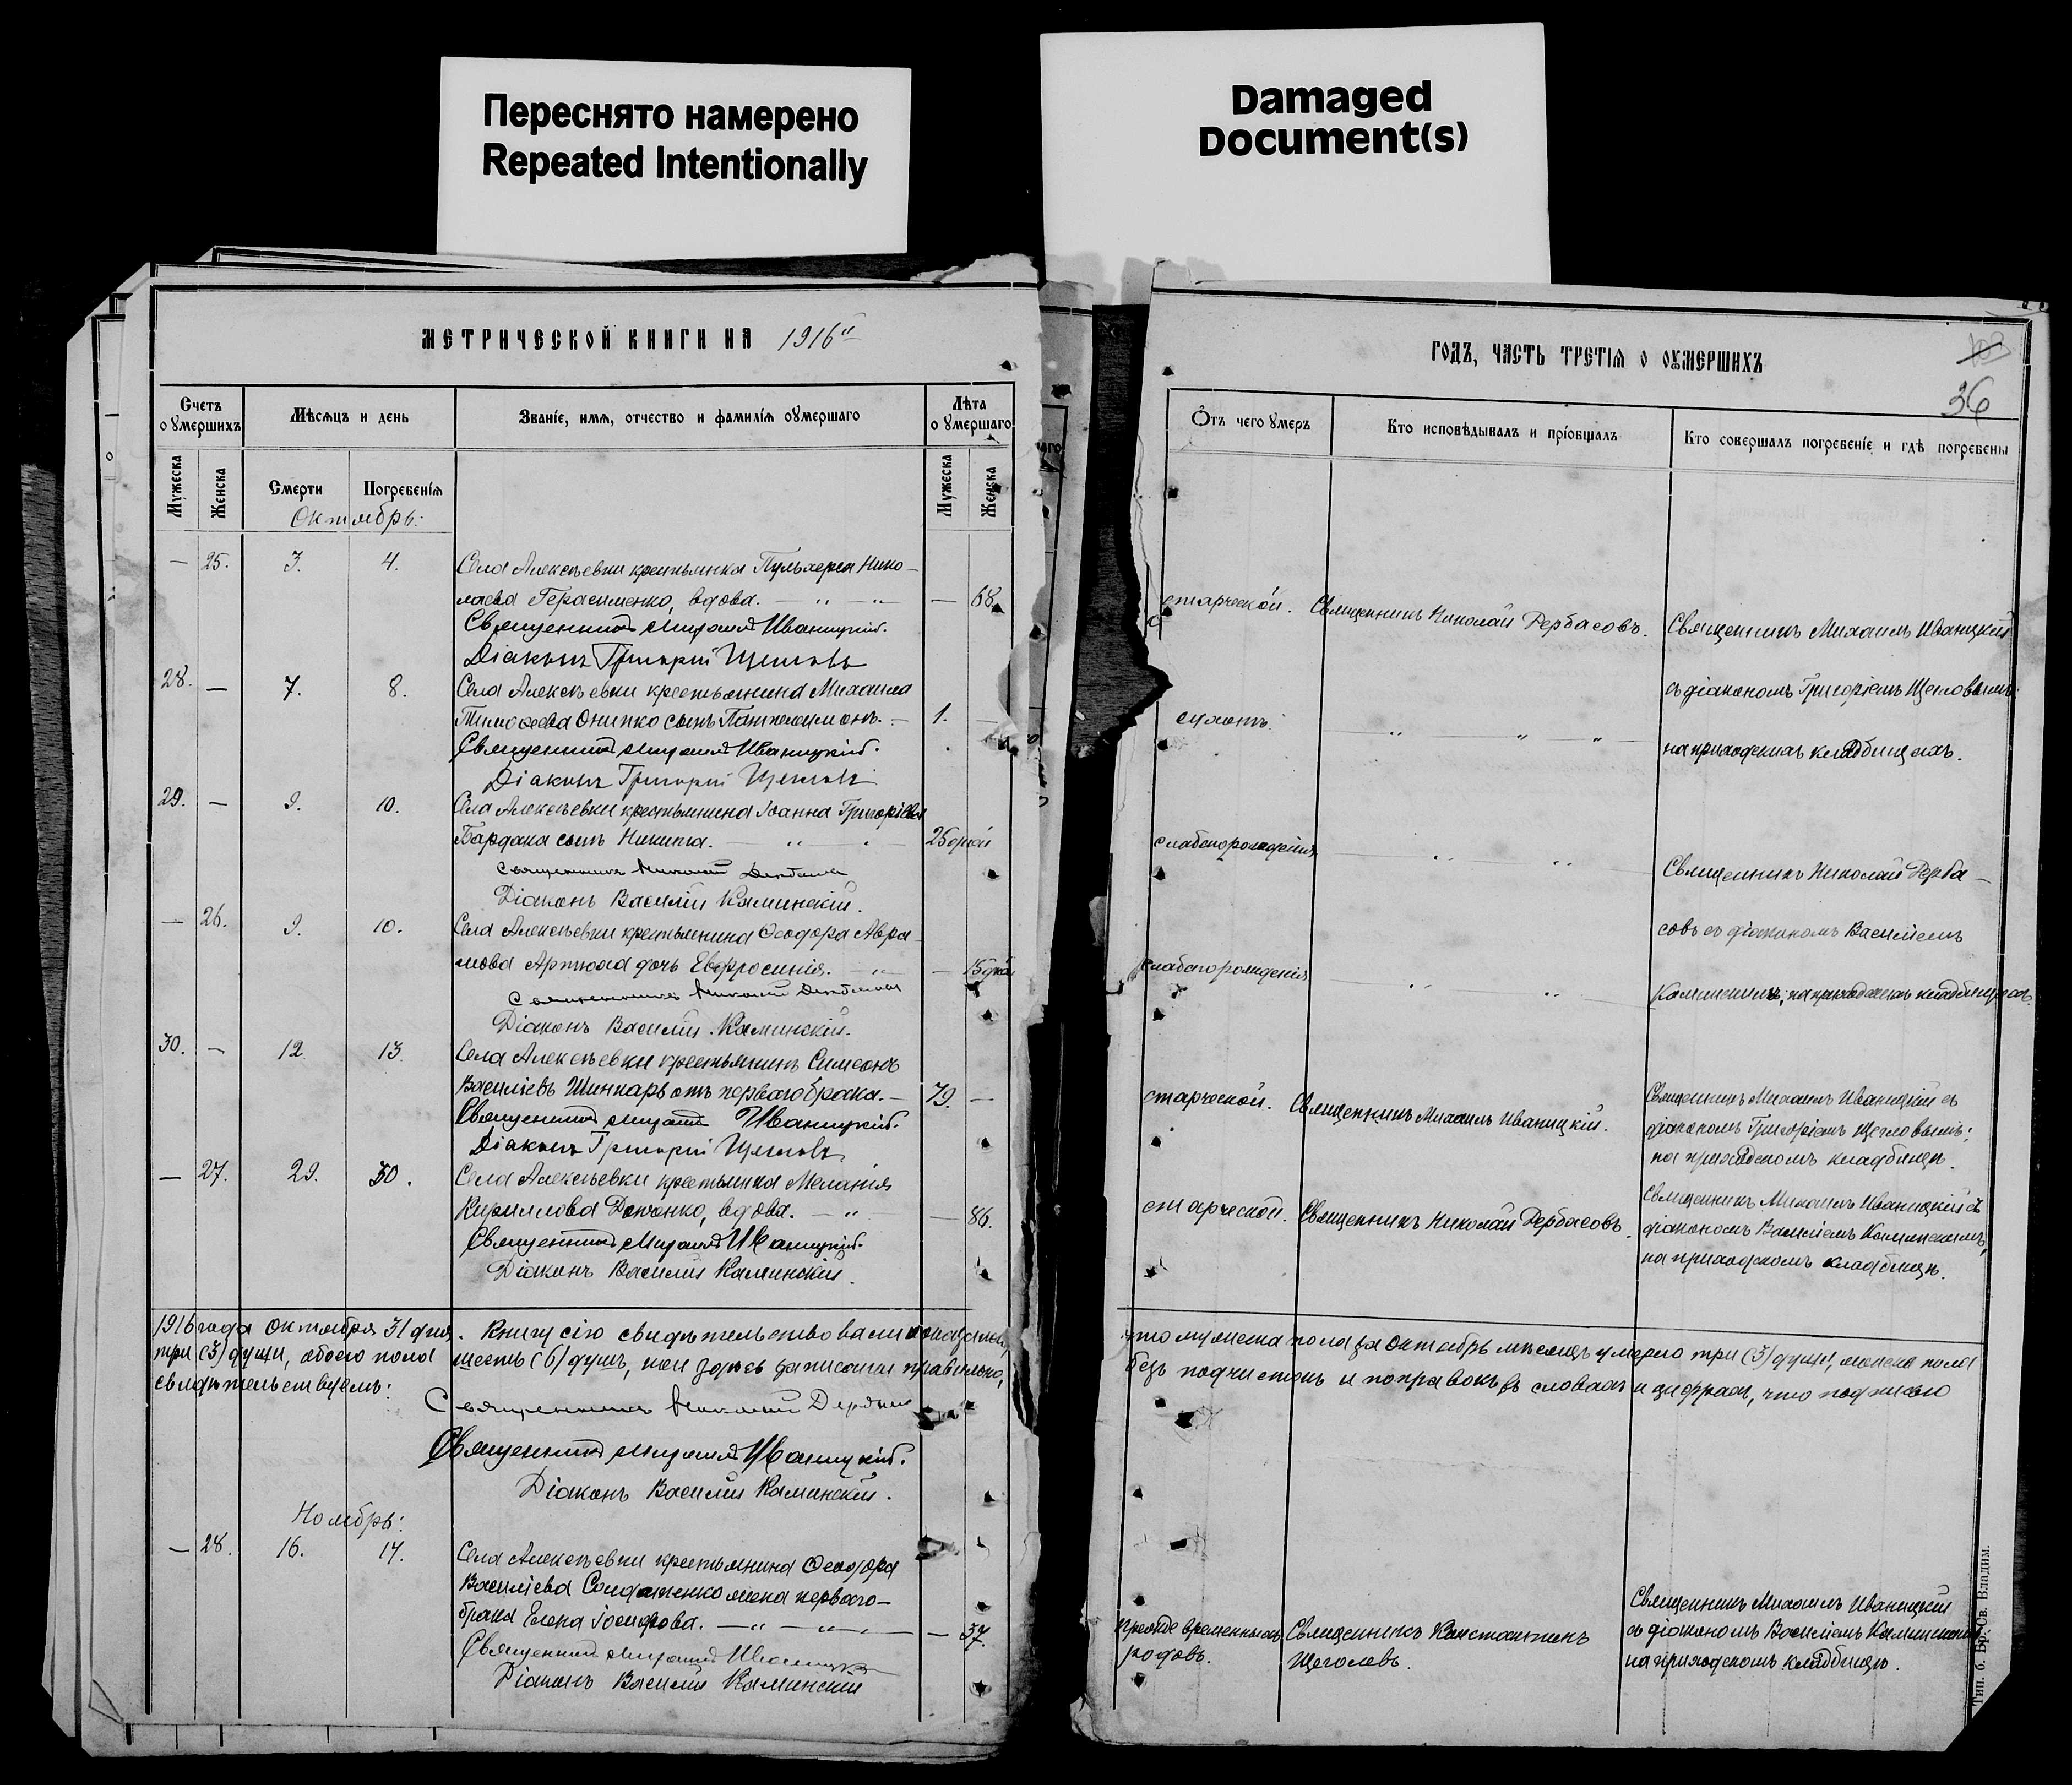 Переснято намерено
Repeated Intentionally
Damaged
Document(s)
МЕТРИЧЕСКОЙ КНИГИ НА 1916й
Счетъ
оумершихъ
Мѣсяцъ и день
Званіе, имя, отчество и фамилія оумершаго
Лѣта
оумершаго
Мужеска
Женска
Смерти
Погребенія
Мужеска
Женска
Октябрь:
— 25. 3. 4. Села Алексѣевки крестьянка Пульхерія Нико-
лаева Герасименко, вдова. — 68.
Священникъ Михаилъ Иваницкій.
Діаконъ Григорій Щегловъ
28. — 7. 8. Села Алексѣевки крестьянина Михаила
Тимоѳеева Онипко сынъ Пантелеимонъ. — 1. —
Священникъ Михаилъ Иваницкій.
Діаконъ Григорій Щегловъ
29. — 9. 10. Села Алексѣевки крестьянина Іоанна Григоріева
Бардака сынъ Никита. 25 дней
Священникъ Николай
Діаконъ Василій Каминскій.
— 26. 9. 10. Села Алексѣевки крестьянина Ѳеодора Авра-
мова дочь Евфросинія. — 15 дней
Священникъ Николай
Діаконъ Василій Каминскій.
30. — 12. 13. Села Алексѣевки крестьянинъ Симеонъ
Василіевъ Шинкарь отъ перваго брака. — 79. —
Священникъ Михаилъ Иваницкій.
Діаконъ Григорій Щегловъ
— 27. 29. 30. Села Алексѣевки крестьянка Меланія
Кириллова вдова. — 86.
Священникъ Михаилъ Иваницкій.
Діаконъ Василій Каминскій.
1916 года октября 31 дня. Книгу сію свидѣтельствовали и оказалось,
три (3) души, обоего пола шесть (6) душъ, кои здѣсь записаны правильно,
свидѣтельствуемъ:
Священникъ Николай
Священникъ Михаилъ Иваницкій.
Діаконъ Василій Каминскій.
Ноябрь:
— 28. 16. 17. Села Алексѣевки крестьянина Ѳеодора
Василіева Солдатенко жена перваго
брака Елена Іосифова. — 37.
Священникъ Михаилъ Иваницкій
Діаконъ Василій Каминскій
ГОДЪ, ЧАСТЬ ТРЕТІЯ О ОУМЕРШИХЪ
36
Отъ чего умеръ
Кто исповѣдывалъ и пріобщалъ
Кто совершалъ погребеніе и гдѣ погребены
старческой. Священникъ Николай Дербасовъ. Священникъ Михаилъ Иваницкій
съ діакономъ Григоріемъ Щегловымъ:
на приходскихъ кладбищахъ.
слабаго рожденія
Священникъ Николай Дерба-
совъ съ діакономъ Василіемъ
слабаго рожденія
Каминскимъ; на приходскихъ кладбищахъ.
старческой. Священникъ Михаилъ Иваницкій. Священникъ Михаилъ Иваницкій съ
діакономъ Григоріемъ Щегловымъ;
на приходскомъ кладбищѣ.
старческой. Священникъ Николай Дербасовъ. Священникъ Михаилъ Иваницкій съ
діакономъ Василіемъ Каминскимъ,
на приходскомъ кладбищѣ.
что мужеска пола за октябрь мѣсяцъ умерло три (3) души, женска пола
безъ подчистокъ и поправокъ въ словахъ и цифрахъ, что подписью
преждевременныхъ родовъ. Священникъ Константинъ
Щеголевъ.
Священникъ Михаилъ Иваницкій
съ діакономъ Василіемъ Каминскимъ
на приходскомъ кладбищѣ.
Тип. б. Бр. Св. Владим.